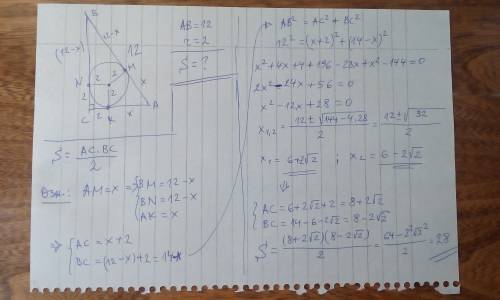 B
12-x
(12-x)
12
M
N
2
2
x
2
2
C
2
K
x
A
S = AC.BC / 2
Озн.: AM = x ⇒ { BM = 12-x
BN = 12-x
AK = x
⇒ { AC = x+2
BC = (12-x)+2 = 14-x
AB = 12
r = 2
S = ?
AB² = AC² + BC²
12² = (x+2)² + (14-x)²
x² + 4x + 4 + 196 - 28x + x² - 144 = 0
2x² - 24x + 56 = 0
x² - 12x + 28 = 0
x₁,₂ = (12 ± √(144 - 4.28)) / 2 = (12 ± √32) / 2
x₁ = 6+2√2 ; x₂ = 6-2√2
⇓
{ AC = 6+2√2+2 = 8+2√2
BC = 14-6-2√2 = 8-2√2
S = (8+2√2)(8-2√2) / 2 = (64 - 2²√2²) / 2 = 28